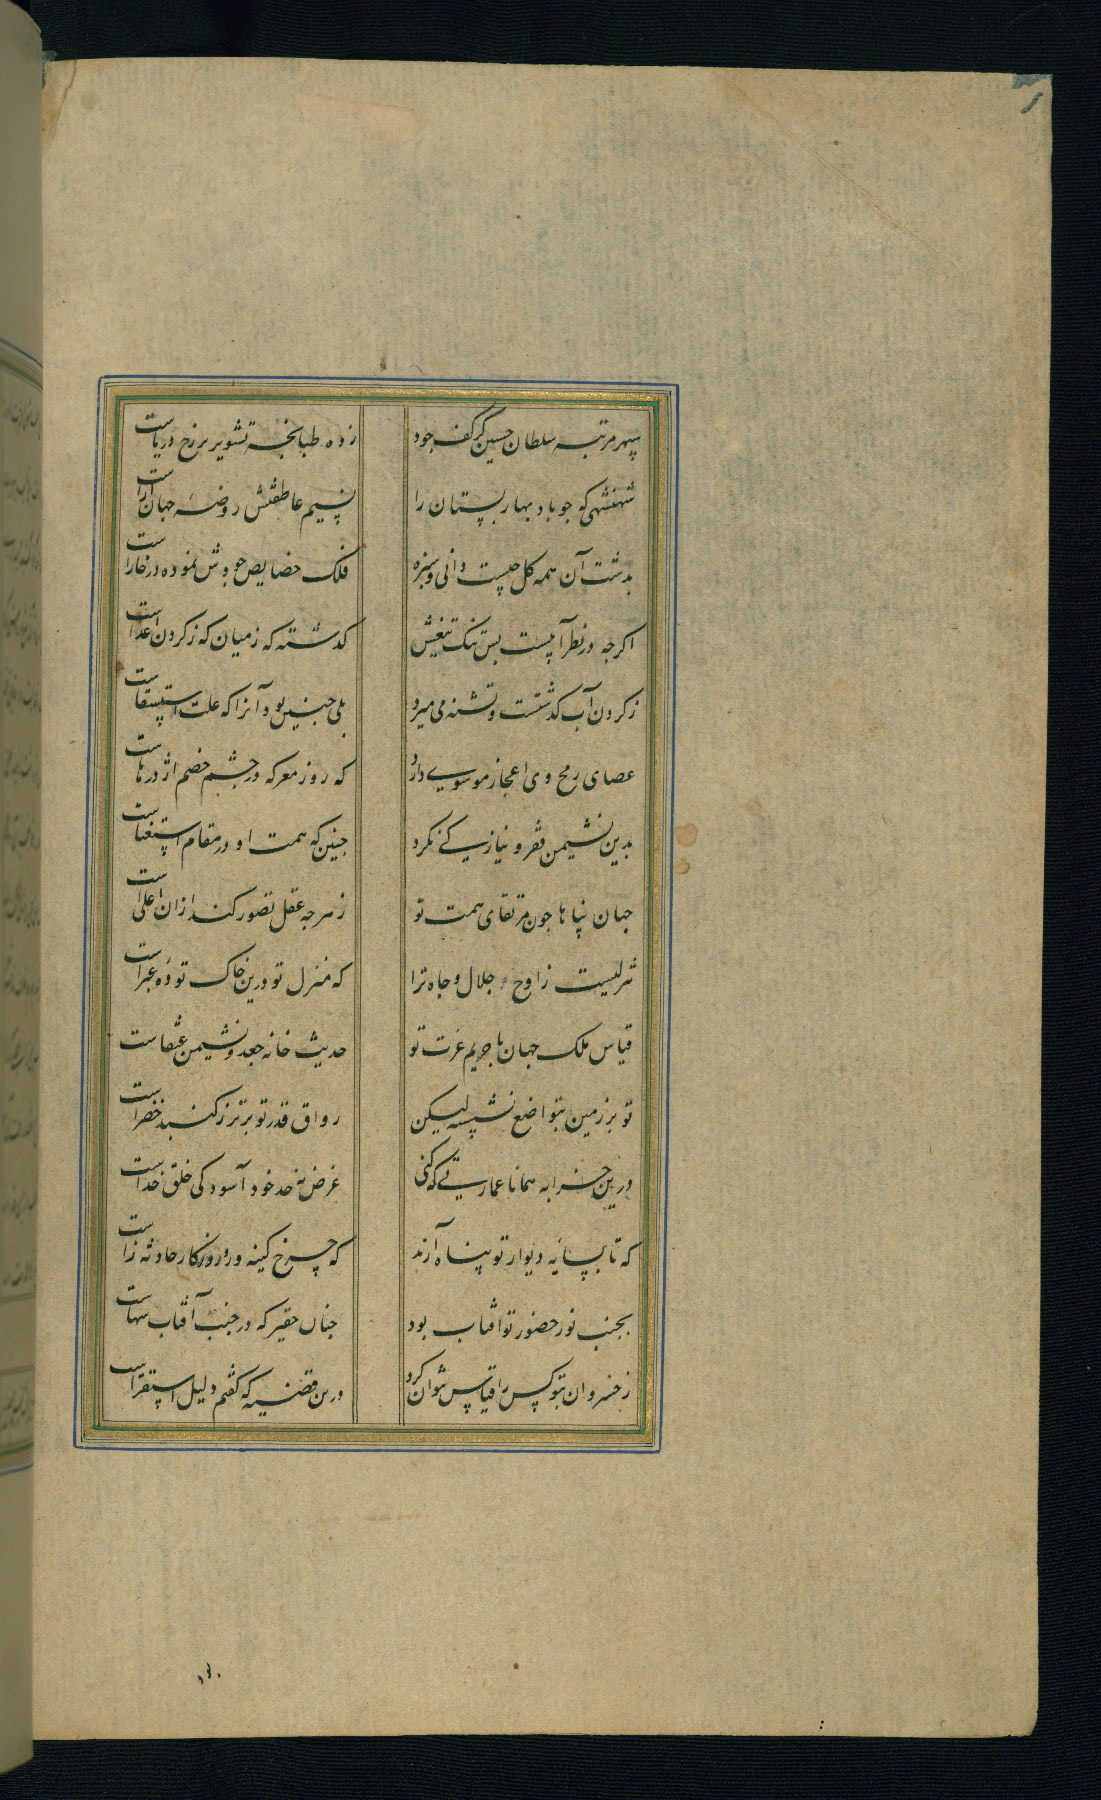 سپهر مرتبه سلطان حسین کز کف جود زده طبانجه تشویر بر رخ دریاست
شهنشهی که جو باد بهار بستان را نسیم عاطفتش روضهٔ جهان آراست
بدشت آن همه کل جیست دانی و سبزه فلک خصایص جودش نموده در خاراست
اکرجه در نظر آبیست بس تنک تیغش کذشته که ز میان که ز کردن اعداست
ز کردن آب کذشتست و تشنه می میرد بلی جنین بود آنرا که علت استسقاست
عصای رمح وی اعجاز موسوی دارد که روز معرکه در جشم خصم اژدرهاست
بدین نشیمن فقر و نیاز کی نکرد جنین که همت او در مقام استغناست
جهان پناها جون مرتقای همت تو ز هرجه عقل تصور کند ازان اعلی است
تنزلیست ز اوج جلال و جاه ترا که منزل تو درین خاک توده غبراست
قیاس ملک جهان با حریم عزت تو حدیث خانه جعد و نشیمن عنقاست
تو بر زمین بتواضع نشسته لیکن رواق قدر تو برتر ز کنبد خضراست
درین خرابه همانا عمارتی که کنی غرض نه حد خود آسودکی خلق خداست
که تا بسایه دیوار تو پناه آرند که چرخ کینه ور و روزکار حادثه زاست
بجنب نور حضور تو آفتاب بود جنان حقیر که در جنب آفتاب سهاست
ز خسروان بتو کس را قیاس نتوان کرد درین قضیه که کفتم دلیل استقراست